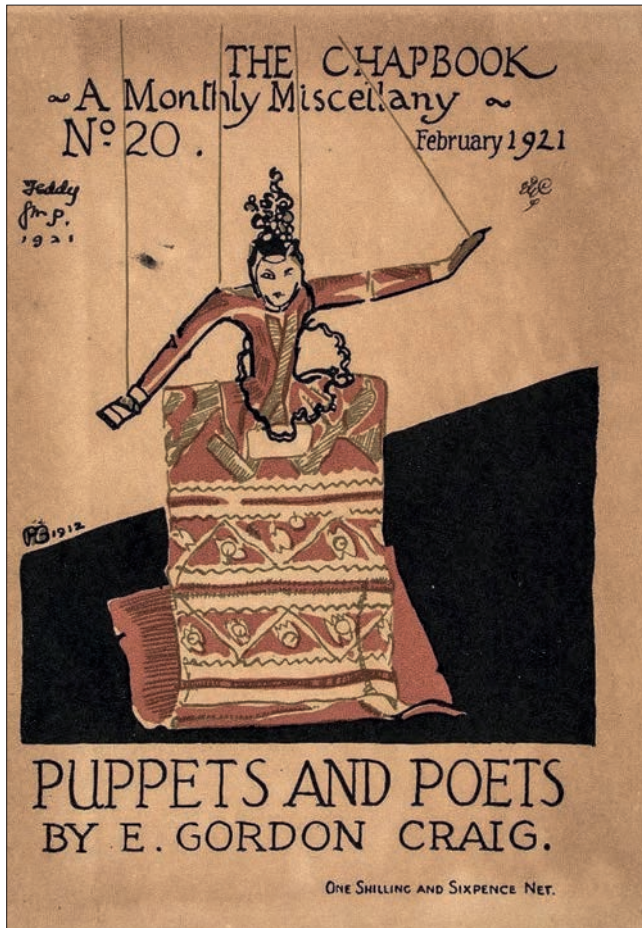 THE CHAPBOOK
~ A Monthly Miscellany ~
No. 20.
February 1921
Teddy
1921
1912
PUPPETS AND POETS
BY E. GORDON CRAIG.
ONE SHILLING AND SIXPENCE NET.